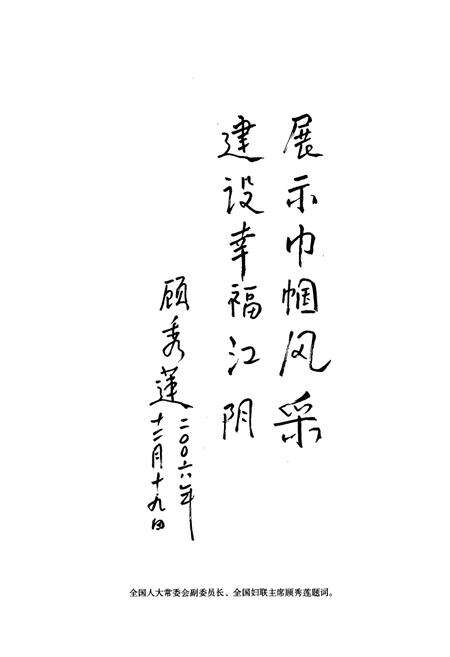 展示巾帼风采
建设幸福江阴
顾秀莲
二〇〇六年
十二月十九日
全国人大常委会副委员长、全国妇联主席顾秀莲题词。